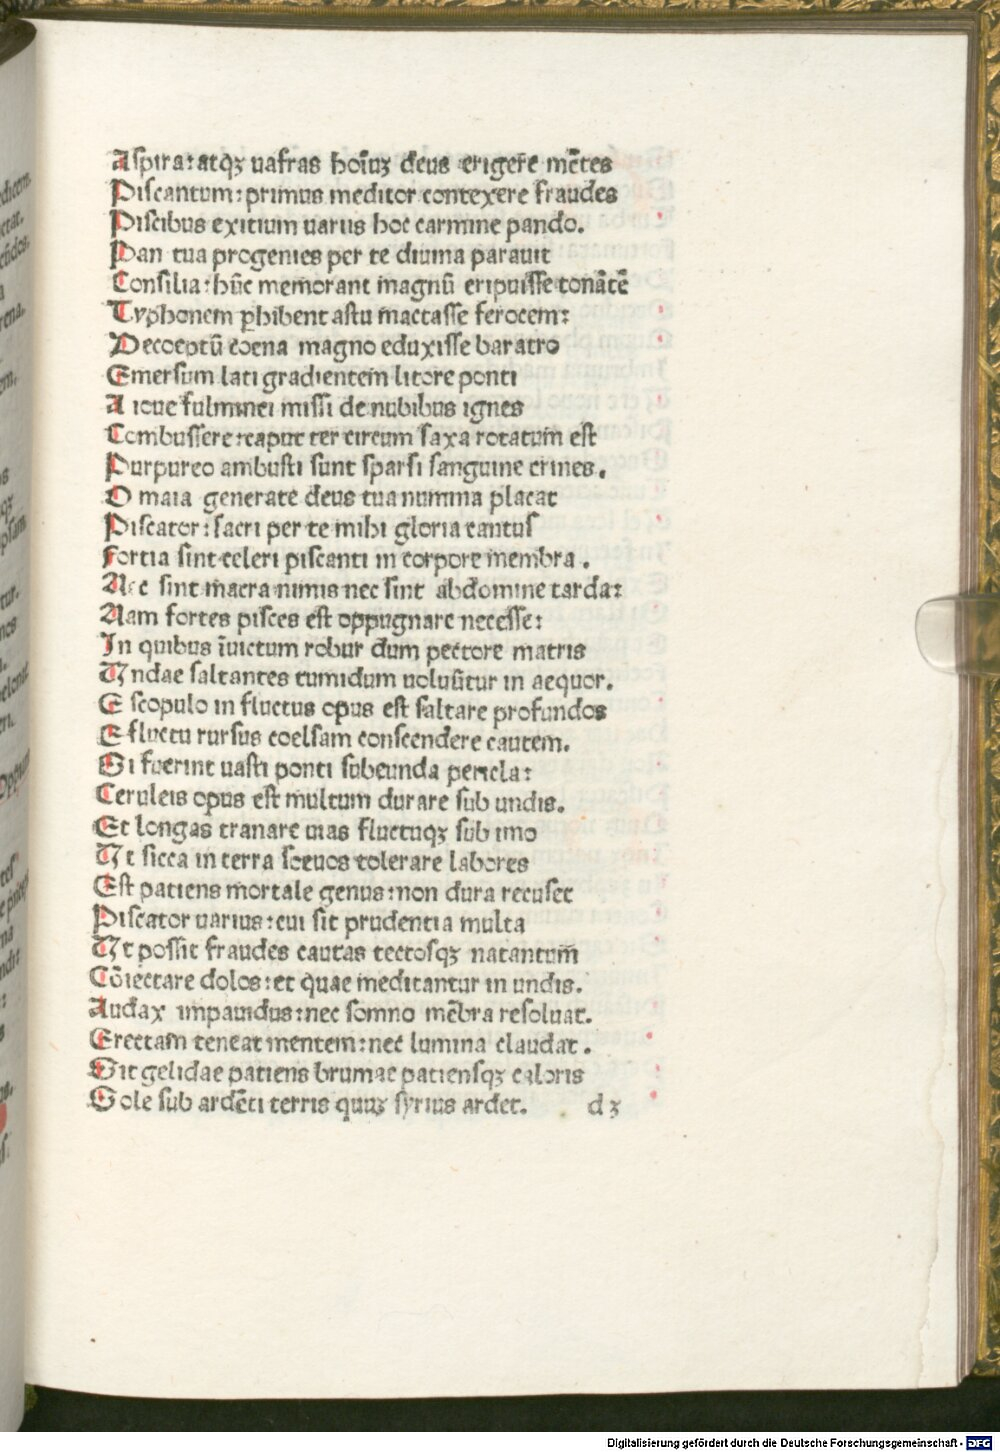 Aspira: atqʒ uafras hoĩuʒ deus erigere mẽtes
Piscantum: primus meditor contexere fraudes
Piscibus exitium uarus hoc carmine pando.
Pan tua progenies per te diuina parauit
Consilia: hũc memorant magnũ eripuisse tonãtẽ
Typhonem ꝑhibent astu mactasse ferocem:
Decoeptũ coena magno eduxisse baratro
Emersum lati gradientem litore ponti
A ioue fulminei missi de nubibus ignes
Combussere: caput ter circum saxa rotatum est
Purpureo ambusti sunt sparsi sanguine crines.
O maia generate deus tua numina placat
Piscator: sacri per te mihi gloria cantus
Fortia sint celeri piscanti in corpore membra.
Nec sint macra nimis nec sint abdomine tarda:
Nam fortes pisces est oppugnare necesse:
In quibus ĩuictum robur dum pectore matris
Vndae saltantes tumidum uoluũtur in aequor.
E scopulo in fluctus opus est saltare profundos
E fluctu rursus coelsam conscendere cautem.
Si fuerint uasti ponti subeunda pericla:
Ceruleis opus est multum durare sub undis.
Et longas tranare uias fluctuqʒ sub imo
Vt sicca in terra soeuos tolerare labores
Est patiens mortale genus: non dura recuset
Piscator uarius: cui sit prudentia multa
Vt possit fraudes cautas tectosqʒ natantum
Cõiectare dolos: et quae meditantur in undis.
Audax impauidus: nec somno mẽbra resoluat.
Erectam teneat mentem: nec lumina claudat.
Sit gelidae patiens brumae patiensqʒ caloris
Sole sub ardẽti terris quuʒ syrius ardet. d ʒ
Digitalisierung gefördert durch die Deutsche Forschungsgemeinschaft - DFG